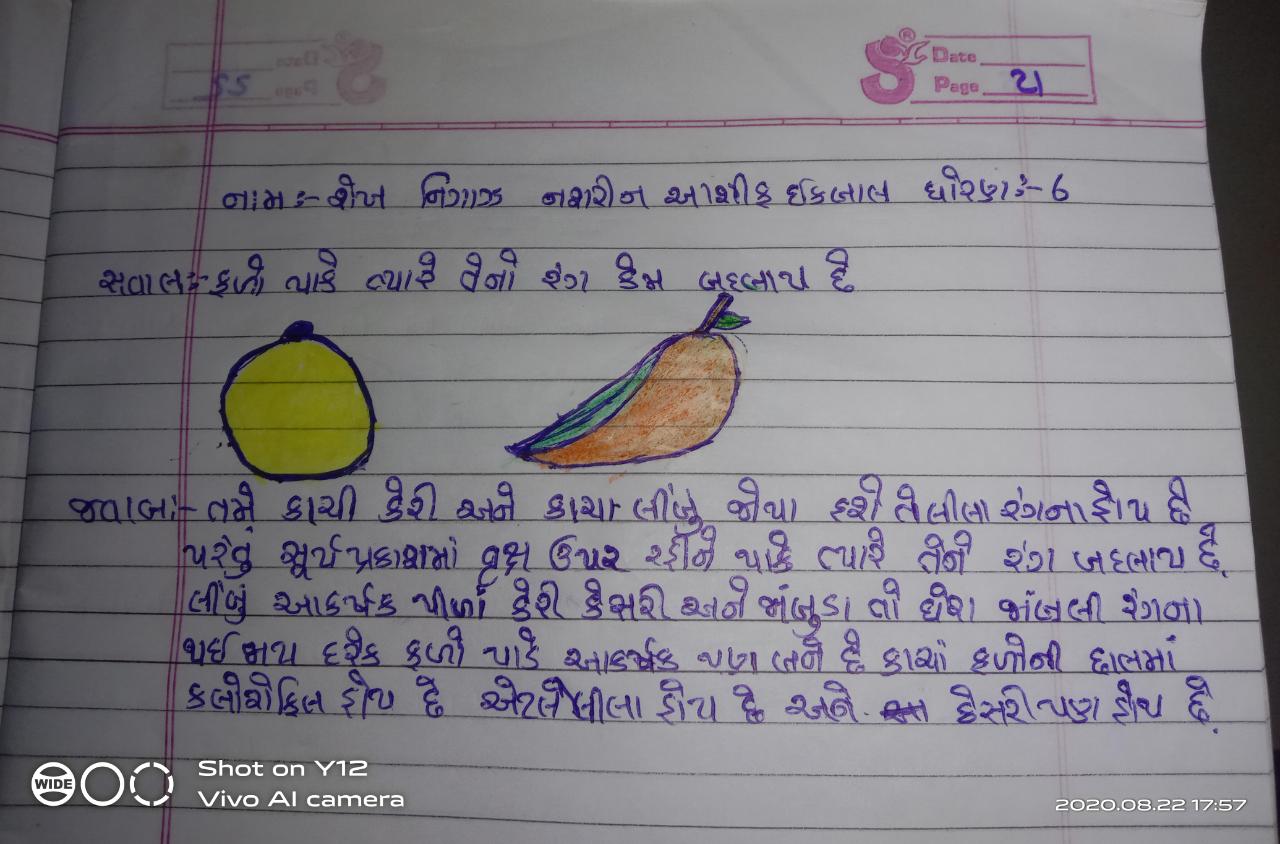 Date
Page ૨૧
નામઃ- શેખ નિગાઝ નશરીન આશીફ ઈકબાલ ધોરણઃ- 6
સવાલઃ- ફળો પાકે ત્યારે તેનો રંગ કેમ બદલાય છે
જવાબઃ- તમે કાચી કેરી અને કાચા લીંબું જોયા હશે તે લીલા રંગના હોય છે
પરંતું સૂર્યપ્રકાશમાં વૃક્ષ ઉપર રહીને પાકે ત્યારે તેને રંગ બદલાય છે.
લીંબું આકર્ષક પીળાં કેરી કેસરી અને જાંબુડા તો ઘેરા જાંબલી રંગના
થઈ જાય દરેક ફળો પાકે આકર્ષક પણ બને છે કાચાં ફળોની છાલમાં
કલોરોફિલ હોય છે એટલે લીલા હોય છે અને કેસરી પણ હોય છે.
WIDE
Shot on Y12
Vivo AI camera
2020.08.22 17:57